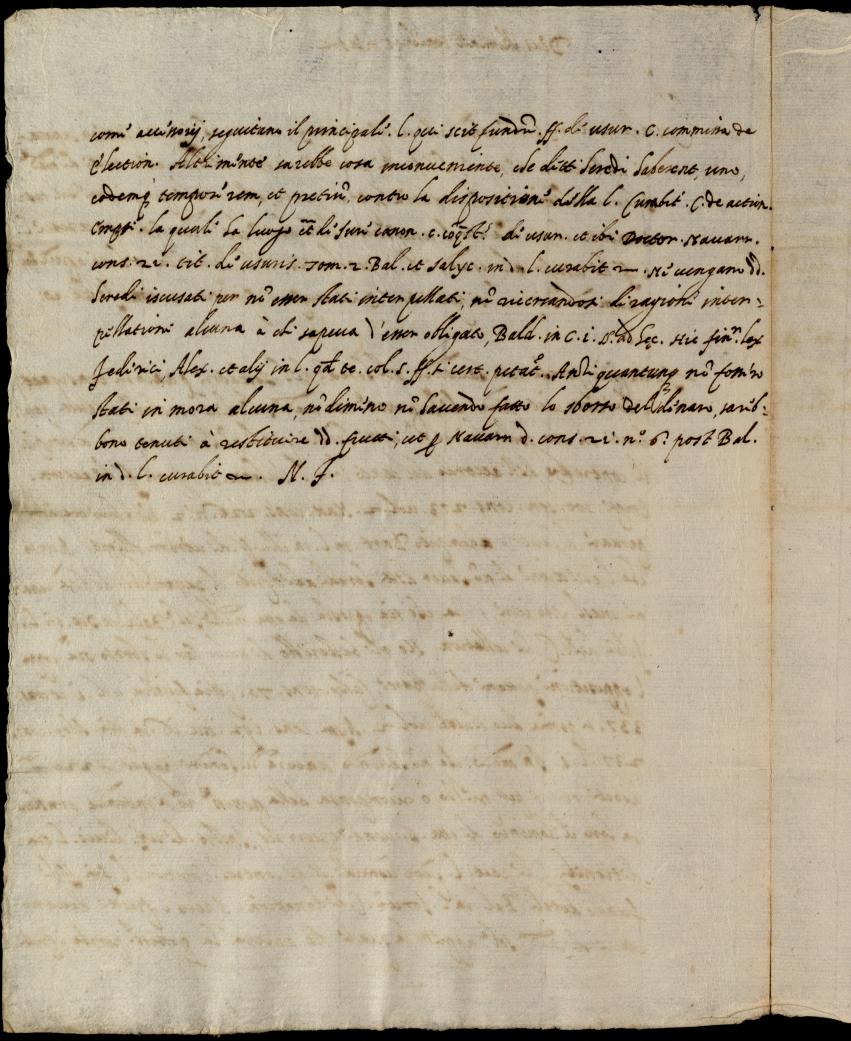 come accessorij, seguitano il principale. l. qui scit fundũ. ff. de usur. c. commissa de
election. Altrimente sarebbe cosa inconveniente, che detti heredi haberent, uno,
eodemq tempore rem, et pretiũ, contro la dispositione della l. Curabit. C. de action.
empti. la quale ha luogo et de Iure canon. de usur. et ibi Doctor. Navarr.
cons. 21. tit. de usuris. tom. 2. Bal. et Salyc. in d. l. curabit. Ne vengano dd.
heredi iscusati per nõ esser stati interpellati, nõ ricercandosi di ragione inter-
pellatione alcuna à chi sapeva d'esser obligato, Bald. in C. i. hic finit lex
Federici, Alex. et alij in l. qd te. col. 5. ff. si cert. petat. Anzi quantunq nõ fossero
stati in mora alcuna, nõdimeno nõ havendo fatto lo sborso del dinaro, sareb-
bono tenuti à restituire dd. frutti, ut Navarr. d. cons. 21. nº. 6. post Bal.
in d. l. curabit. N. F.